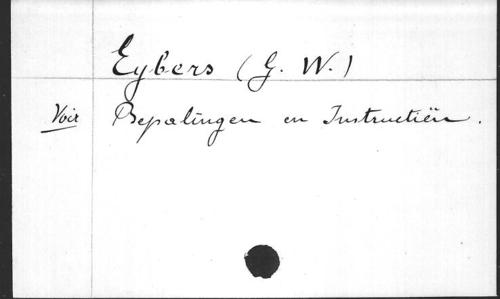 Eybers (G. W.)
Voir Bepalingen en Instructiën.